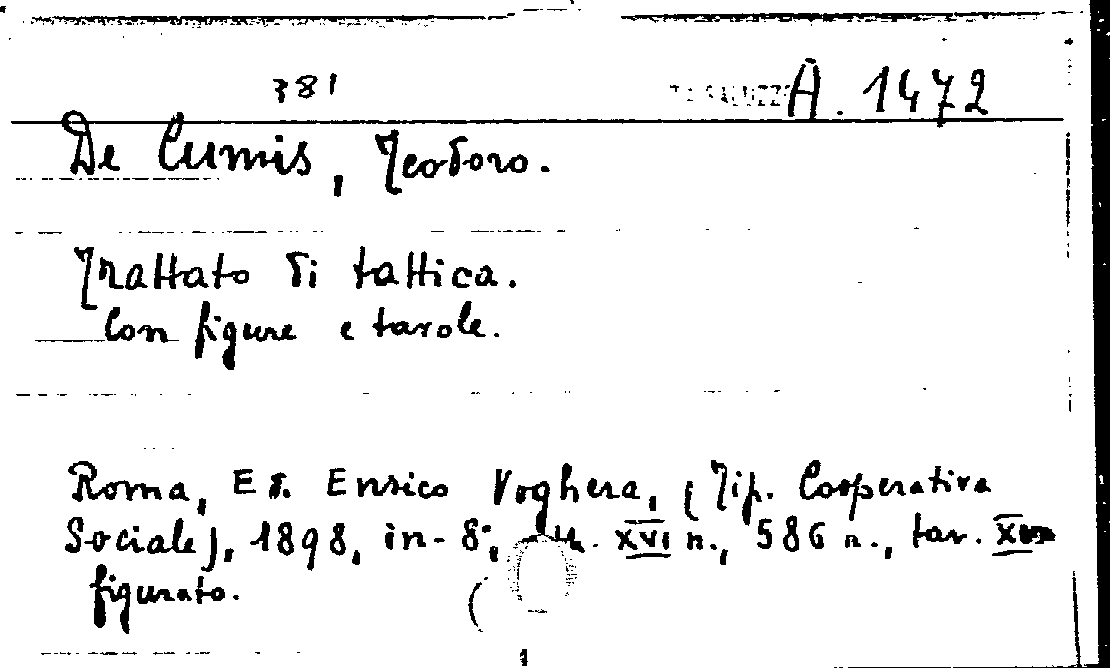 381 A. 1472
De Cumis, Teodoro.
Trattato di tattica.
Con figure e tavole.
Roma, Ed. Enrico Voghera, (Tip. Cooperativa
Sociale), 1898, in-8°, XVI n., 586 n., tav.
figurato.
1